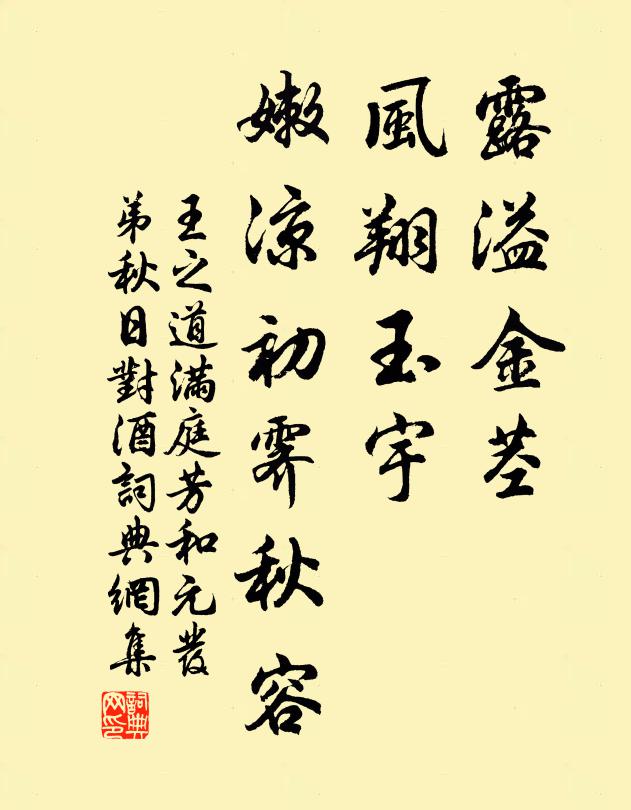 露溢金莖
風翔玉宇
嫩涼初霽秋容
王之道滿庭芳和元發
弟秋日對酒詞典網集
詞典
网印